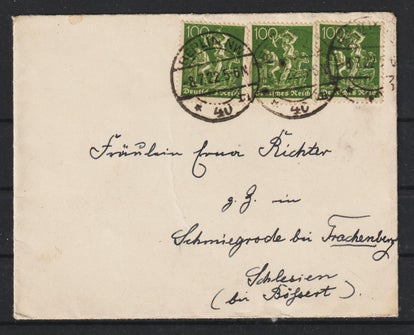 100 100 100
Deutsches Reich Deutsches Reich Deutsches Reich
BERLIN NW
22.5-6N
* 40
* 40
Fräulein Erna Richter
z. Z. in
Schmiegrode bei Trachenberg
Schlesien
(bei Bössert).